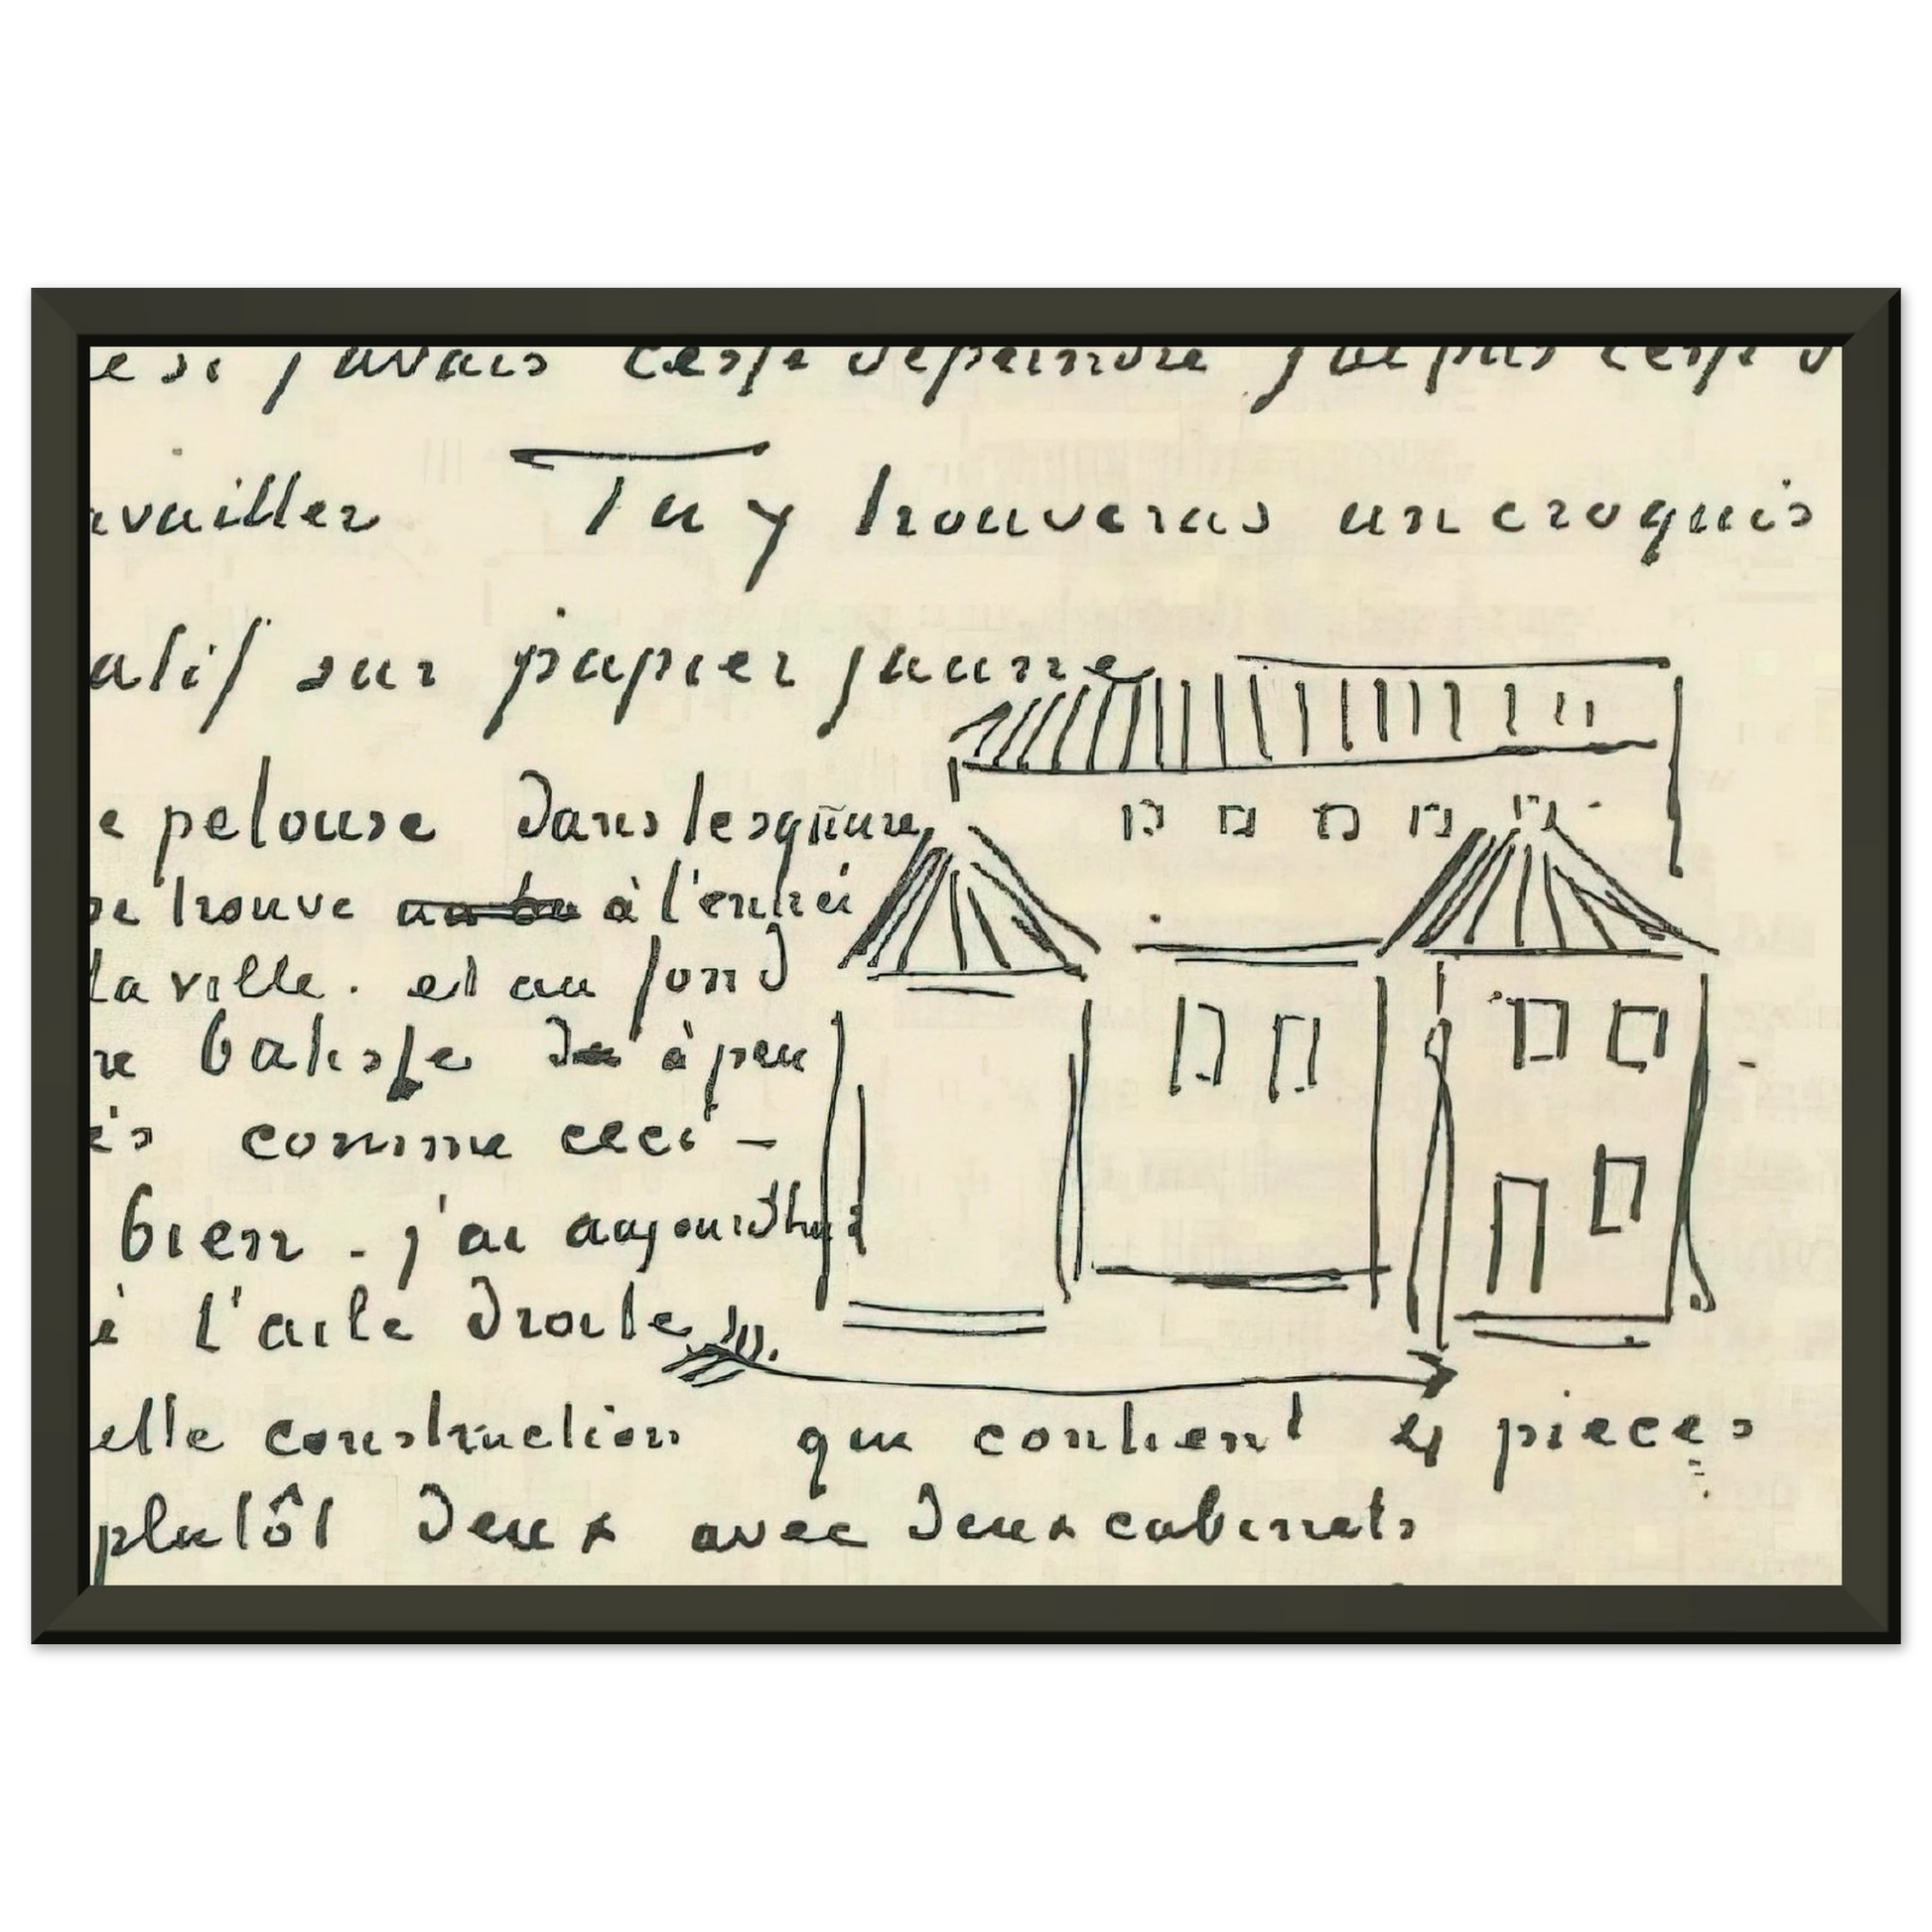 e si j'avais cesse de peindre
availler Tu y trouveras un croquis
atif sur papier jaune
e pelouse dans le square
se trouve à l'entrée
la ville. et au fond
ne batisse à peu
ès comme ceci –
bien – j'ai aujourdhui
é l'aile droite
ette construction qui contient 4 pieces
plutôt deux avec deux cabinets